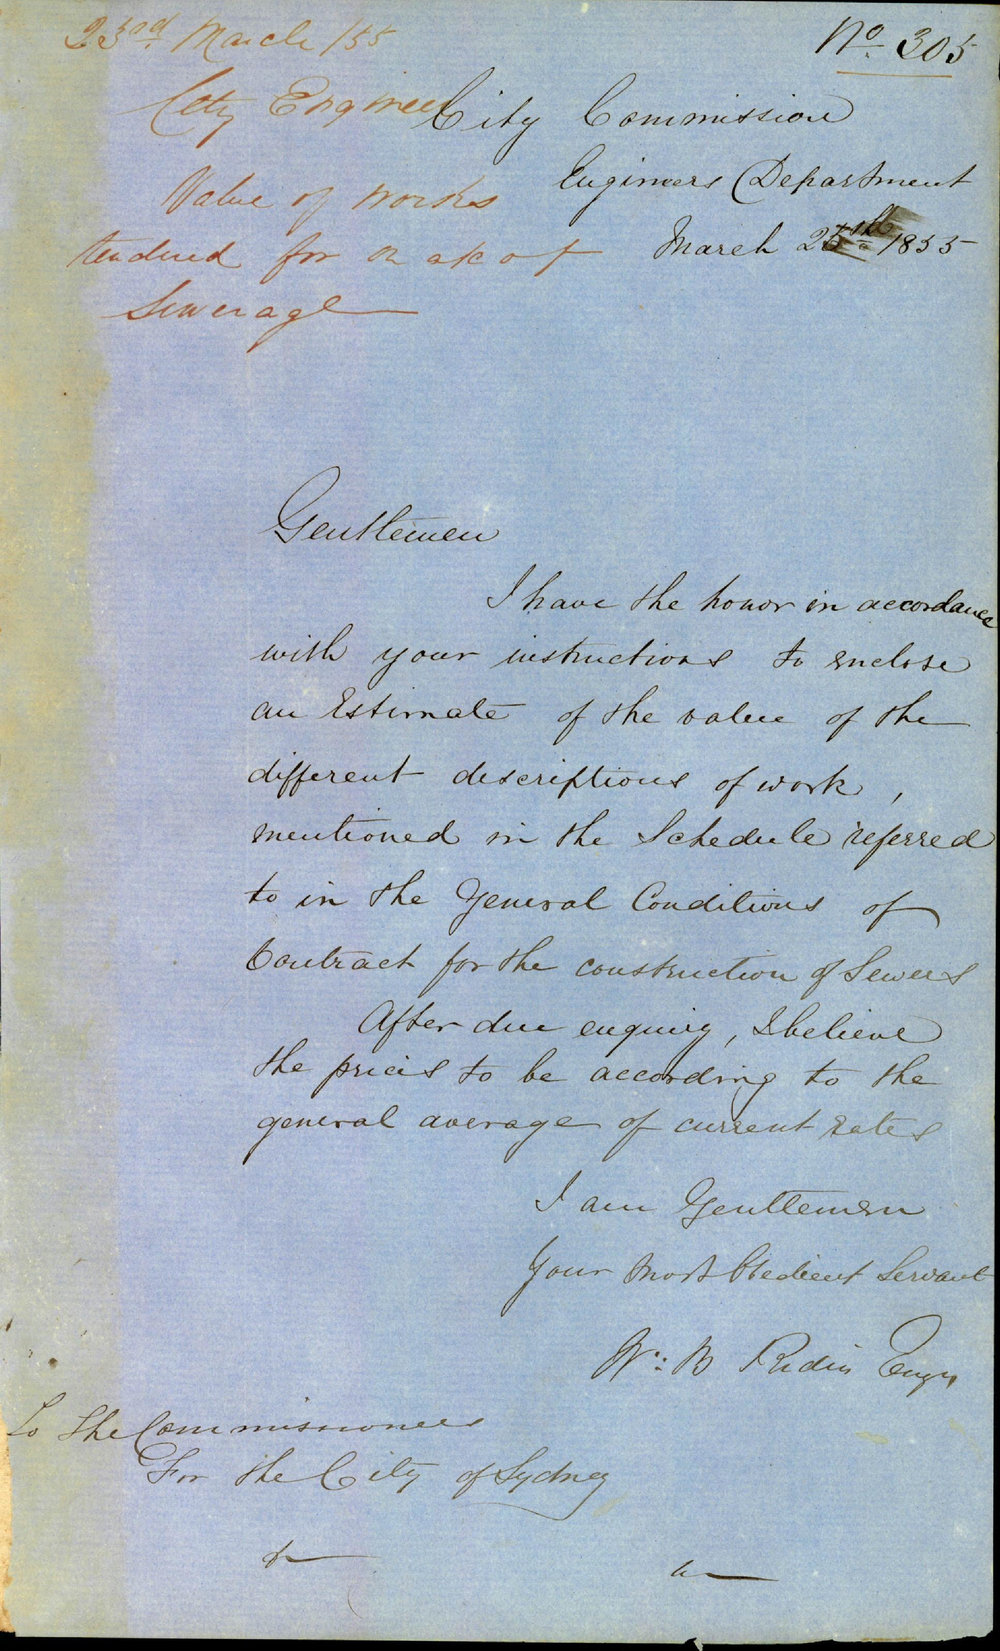 23rd March /55
City Engineer
Value of works
tendered for on a/c of
Sewerage
No 305
City Commission
Engineers Department
March 1855
Gentlemen
I have the honor in accordance
with your instructions to enclose
an Estimate of the value of the
different descriptions of work,
mentioned in the Schedule referred
to in the General Conditions of
Contract for the construction of Sewers
After due enquiry, I believe
the prices to be according to the
general average of current rates
I am Gentlemen
Your Most Obedient Servant
Wm: B Rider Engr
To The Commissioners
For the City of Sydney